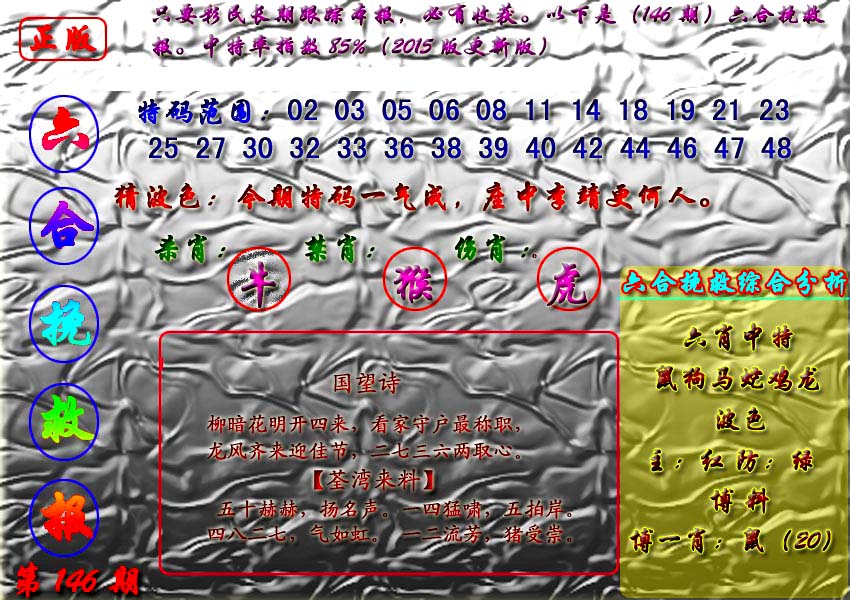 正版
只要彩民长期跟踪本报，必有收获。以下是（146期）六合挽救
报。中特率指数85%（2015版更新版）
六合挽救报
第146期
特码范围：02 03 05 06 08 11 14 18 19 21 23
25 27 30 32 33 36 38 39 40 42 44 46 47 48
猜波色：今期特码一气成，座中李靖更何人。
杀肖：牛 禁肖：猴 伤肖：虎
国望诗
柳暗花明开四来，看家守户最称职，
龙风齐来迎佳节，二七三六两取心。
【荃湾来料】
五十赫赫，扬名声。一四猛啸，五拍岸。
四八二七，气如虹。一二流芳，猪受崇。
六合挽救综合分析
六肖中特
鼠狗马蛇鸡龙
波色
主：红防：绿
博料
博一肖：鼠（20）